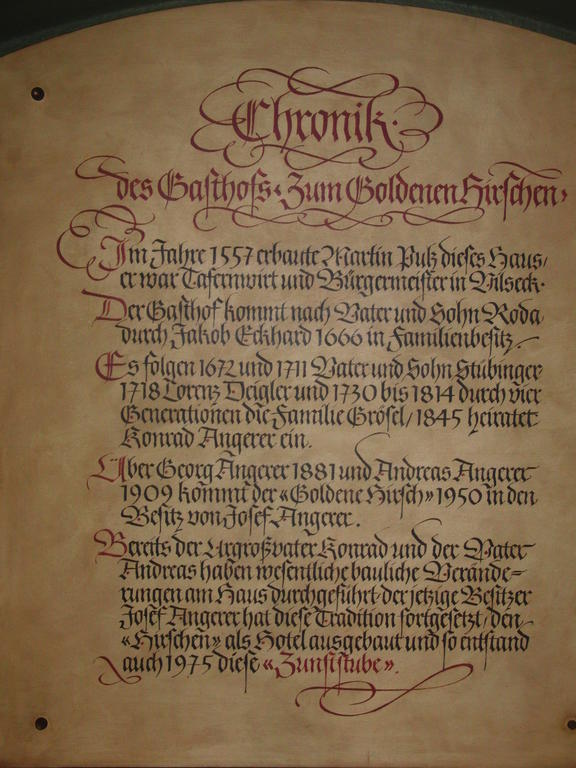 Chronik.
des Gasthofs «Zum Goldenen Hirschen»
Im Jahre 1557 erbaute Martin Pulz dieses Haus,
er war Tafernwirt und Bürgermeister in Vilseck.
Der Gasthof kommt nach Vater und Sohn Roda
durch Jakob Eckhard 1666 in Familienbesitz.
Es folgen 1672 und 1711 Vater und Sohn Stübinger
1718 Lorenz Deigler und 1730 bis 1814 durch vier
Generationen die Familie Grösel, 1845 heiratet
Konrad Angerer ein.
Über Georg Angerer 1881 und Andreas Angerer
1909 kommt der «Goldene Hirsch» 1950 in den
Besitz von Josef Angerer.
Bereits der Urgroßvater Konrad und der Vater
Andreas haben wesentliche bauliche Verände-
rungen am Haus durchgeführt, der jetzige Besitzer
Josef Angerer hat diese Tradition fortgesetzt, den
«Hirschen» als Hotel ausgebaut und so entstand
auch 1975 diese «Zunftstube».